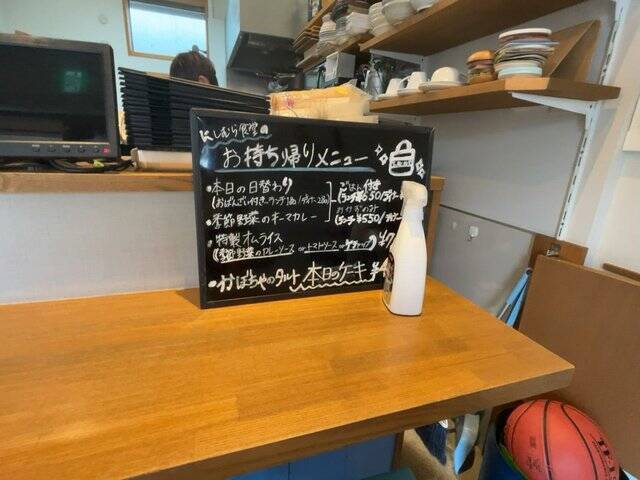 にしむら食堂の
お持ち帰りメニュー
・本日の日替わり
(おばんざい付き・ランチ1品/ディナー2品)
ごはん付き
(ランチ¥650/ディナー
・季節野菜のキーマカレー
おかずのみ
(ランチ¥550/ディナー
・特製オムライス
(季節野菜のカレーソース or トマトソース or ケチャップ) ¥7
・かぼちゃのタルト 本日のケーキ ¥4